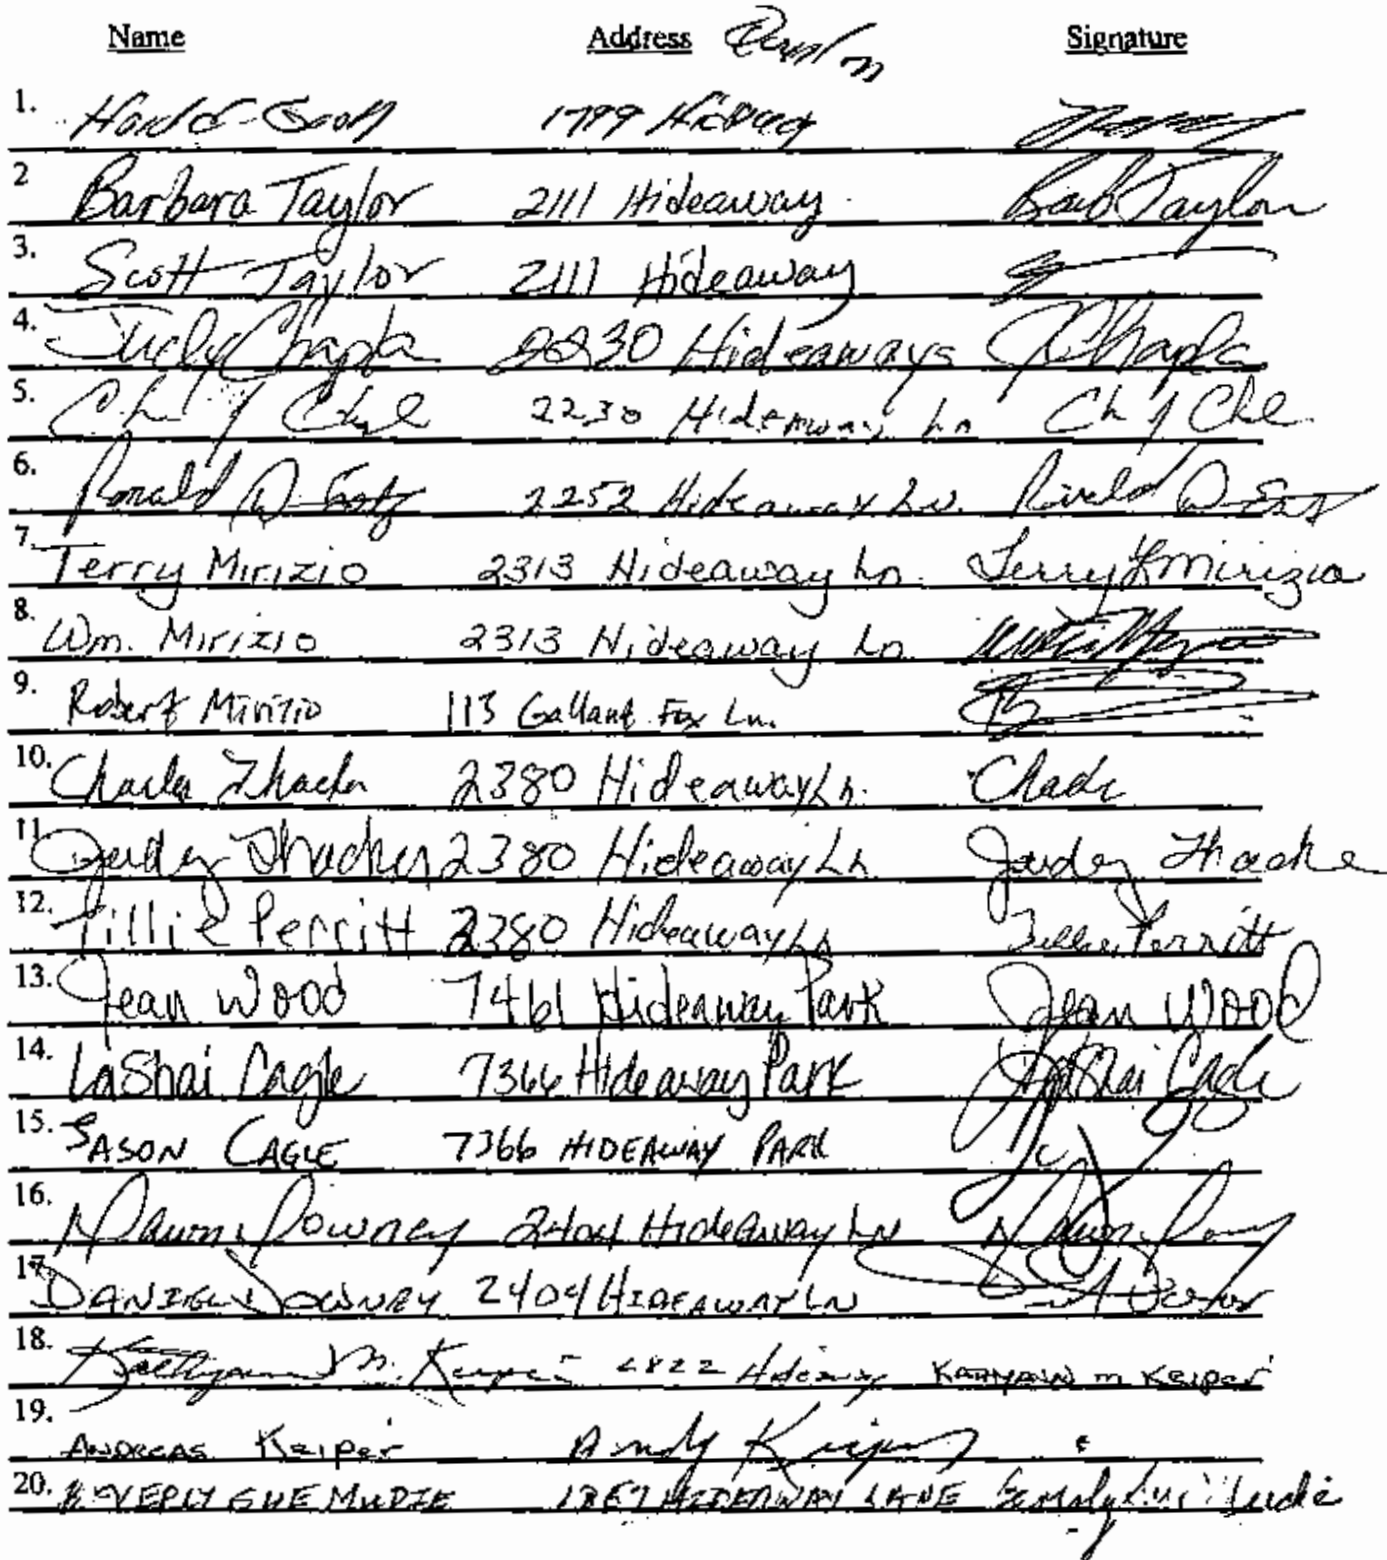 Name Address Signature
1. 1799
2 Barbara Taylor 2111 Hideaway Barb Taylor
3. Scott Taylor 2111 Hideaway
4. Judy Chapla 2230 Hideaways JChapla
5. 2230 Hideaway Ln
6. Ronald D 2252 Hideaway Ln. Ronald D
7. Terry Mirizio 2313 Hideaway Ln. Terry L Mirizio
8. Wm. Mirizio 2313 Hideaway Ln.
9. Robert Mirizio 113 Gallant Fox Ln.
10. Charles Thacker 2380 Hideaway Ln.
11 Judy Thacker 2380 Hideaway Ln Judy Thacke
12. Tillie Perritt 2380 Hideaway Ln Tillie Perritt
13. Jean Wood 7461 Hideaway Park Jean Wood
14. LaShai Cagle 7366 Hideaway Park LaShai Cagle
15. JASON CAGLE 7366 HIDEAWAY PARK JC
16. Dawn Downey 2404 Hideaway Ln Dawn
17. DANIEL DOWNEY 2404 HIDEAWAY LN
18. M. 2822 KATHYANN m Keiper
19. ANDREAS Keiper Andy Keiper
20. BEVERLY SUE MUDIE 1867 HIDEAWAY LANE